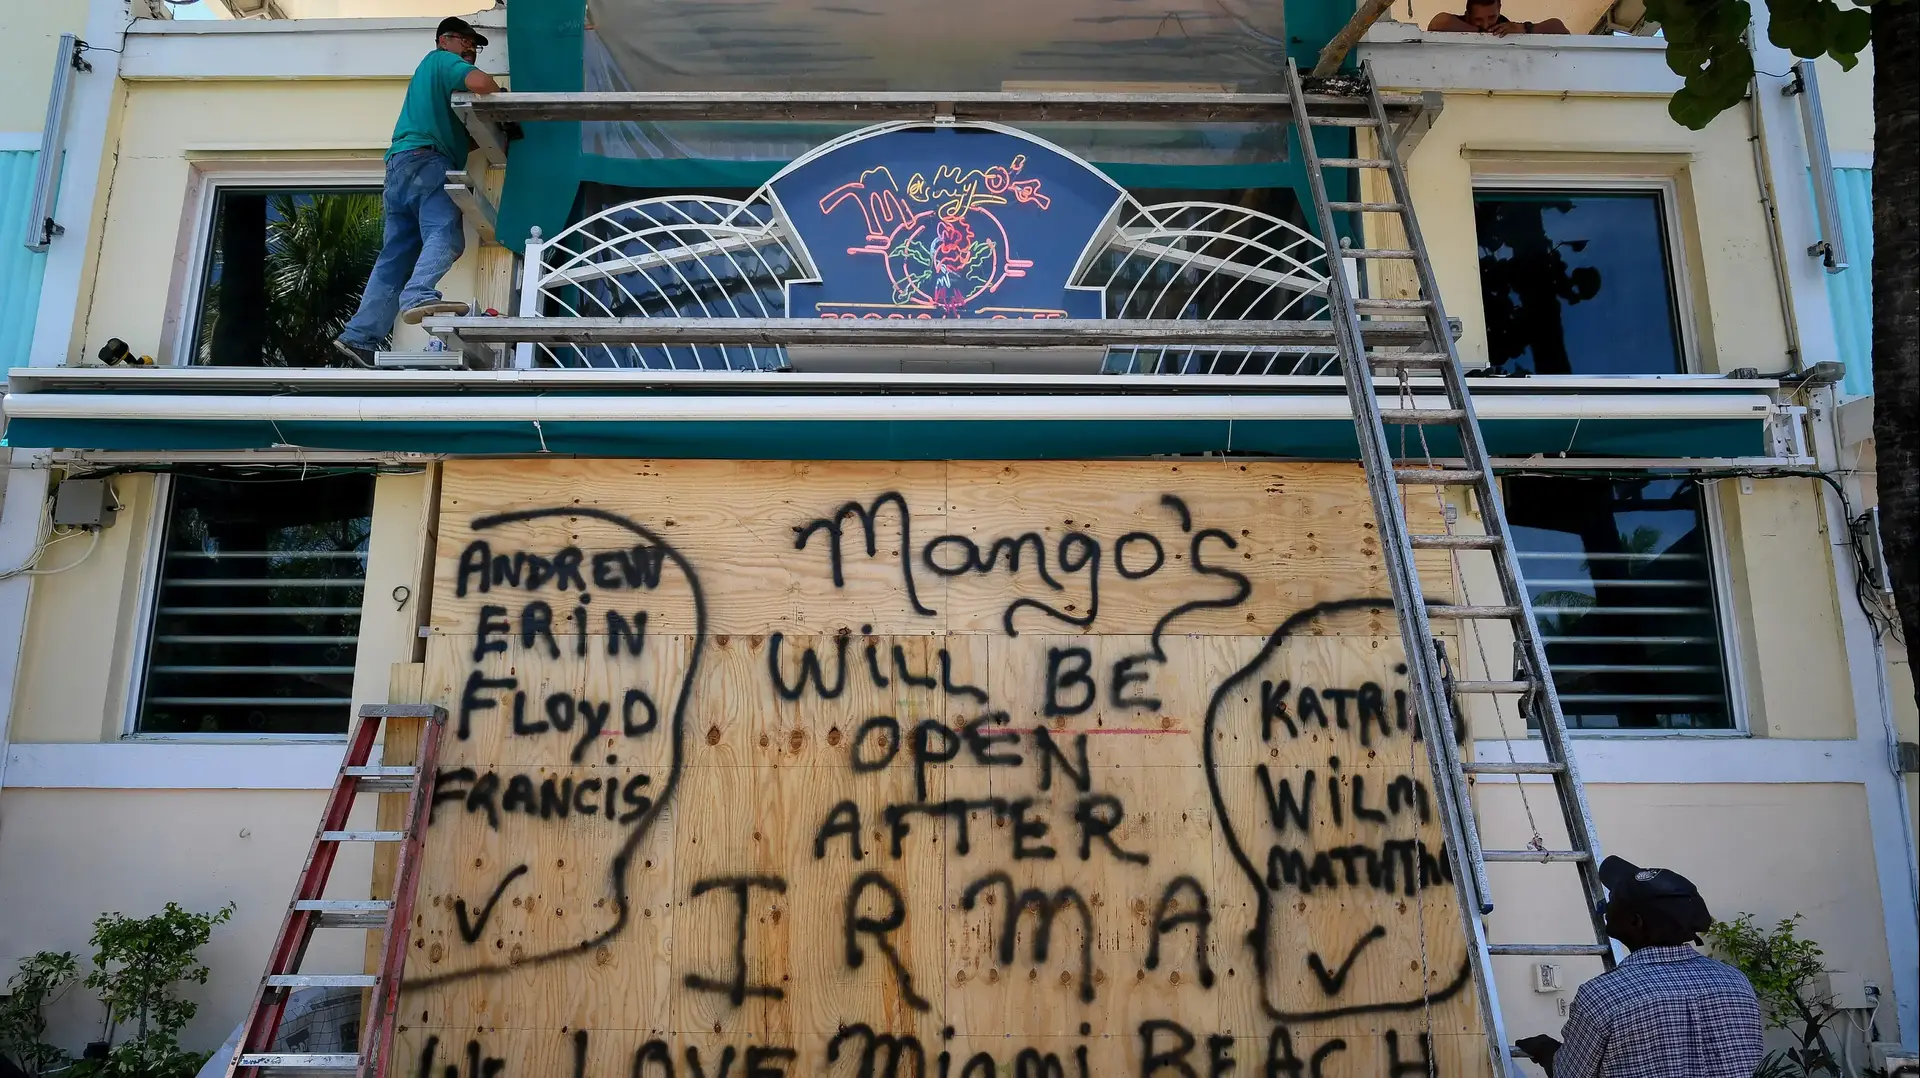 Mango's
TROPICAL CAFE
9
ANDREW
ERIN
FLOYD
FRANCIS
Mango's
WILL BE
OPEN
AFTER
IRMA
KATRI
WILM
MATUTH
WE LOVE Miami BEACH